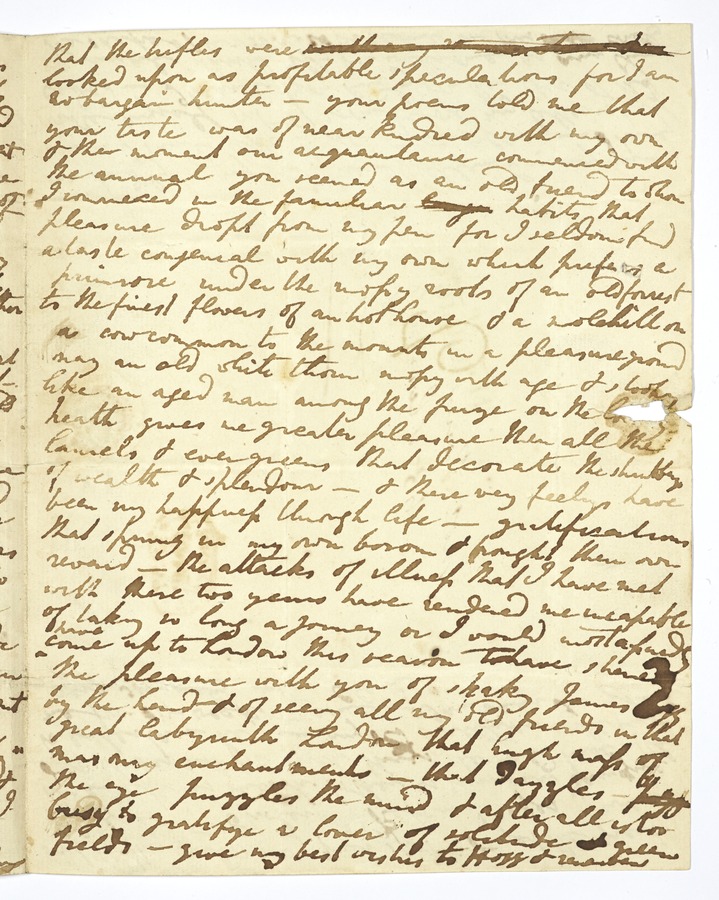 that the trifles were
looked upon as profitable speculations for I am
no bargain hunter — your poems told me that
your taste was of near kindred with my own
& the moment our acquantance commencedwith
the annual you seemed as an old friend to whom
I conversed in the familiar habits that
pleasure dropt from my pen for I seldom find
a taste congenial with my own which prefers a
primrose under the mossy roots of an oldforrest
to the finest flowers of an hothouse & a molehill on
a cowcommon to the mounts in a pleasureground
nay an old white thorn mossy with age & stooping
like an aged man among the furze on the
heath gives me greater pleasure then all the
laurels & evergreens that decorate the shrubberys
of wealth & splendour — & these very feelings have
been my happiness through life — gratifications
that sprung in my own bosom & brought their own
reward — the attacks of illness that I have met
with these two years have rendered me incapable
of taking so long a journey or I would most assuredly
have
come up to London this season to have shared
the pleasure with you of shaking James
by the hand & of seeing all my old friends in that
great labyrinth London that huge mass of
masonry enchantments — that dazzles
the eye puzzles the mind & after all is too
busy to gratifye a lover of solitude & green
fields — give my best wishes to Hogg & remember